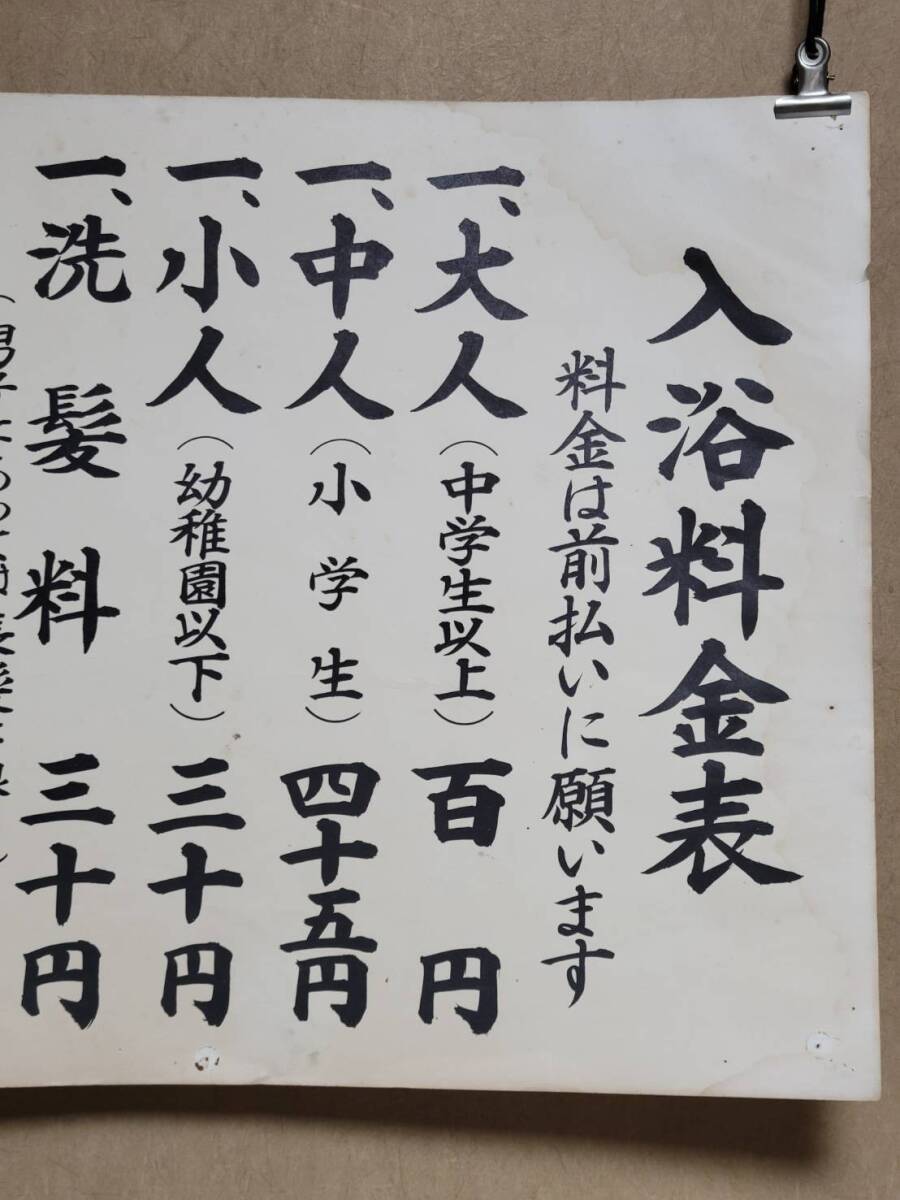 入浴料金表
料金は前払いに願います
一、大人（中学生以上）百円
一、中人（小学生）四十五円
一、小人（幼稚園以下）三十円
一、洗髪料 三十円